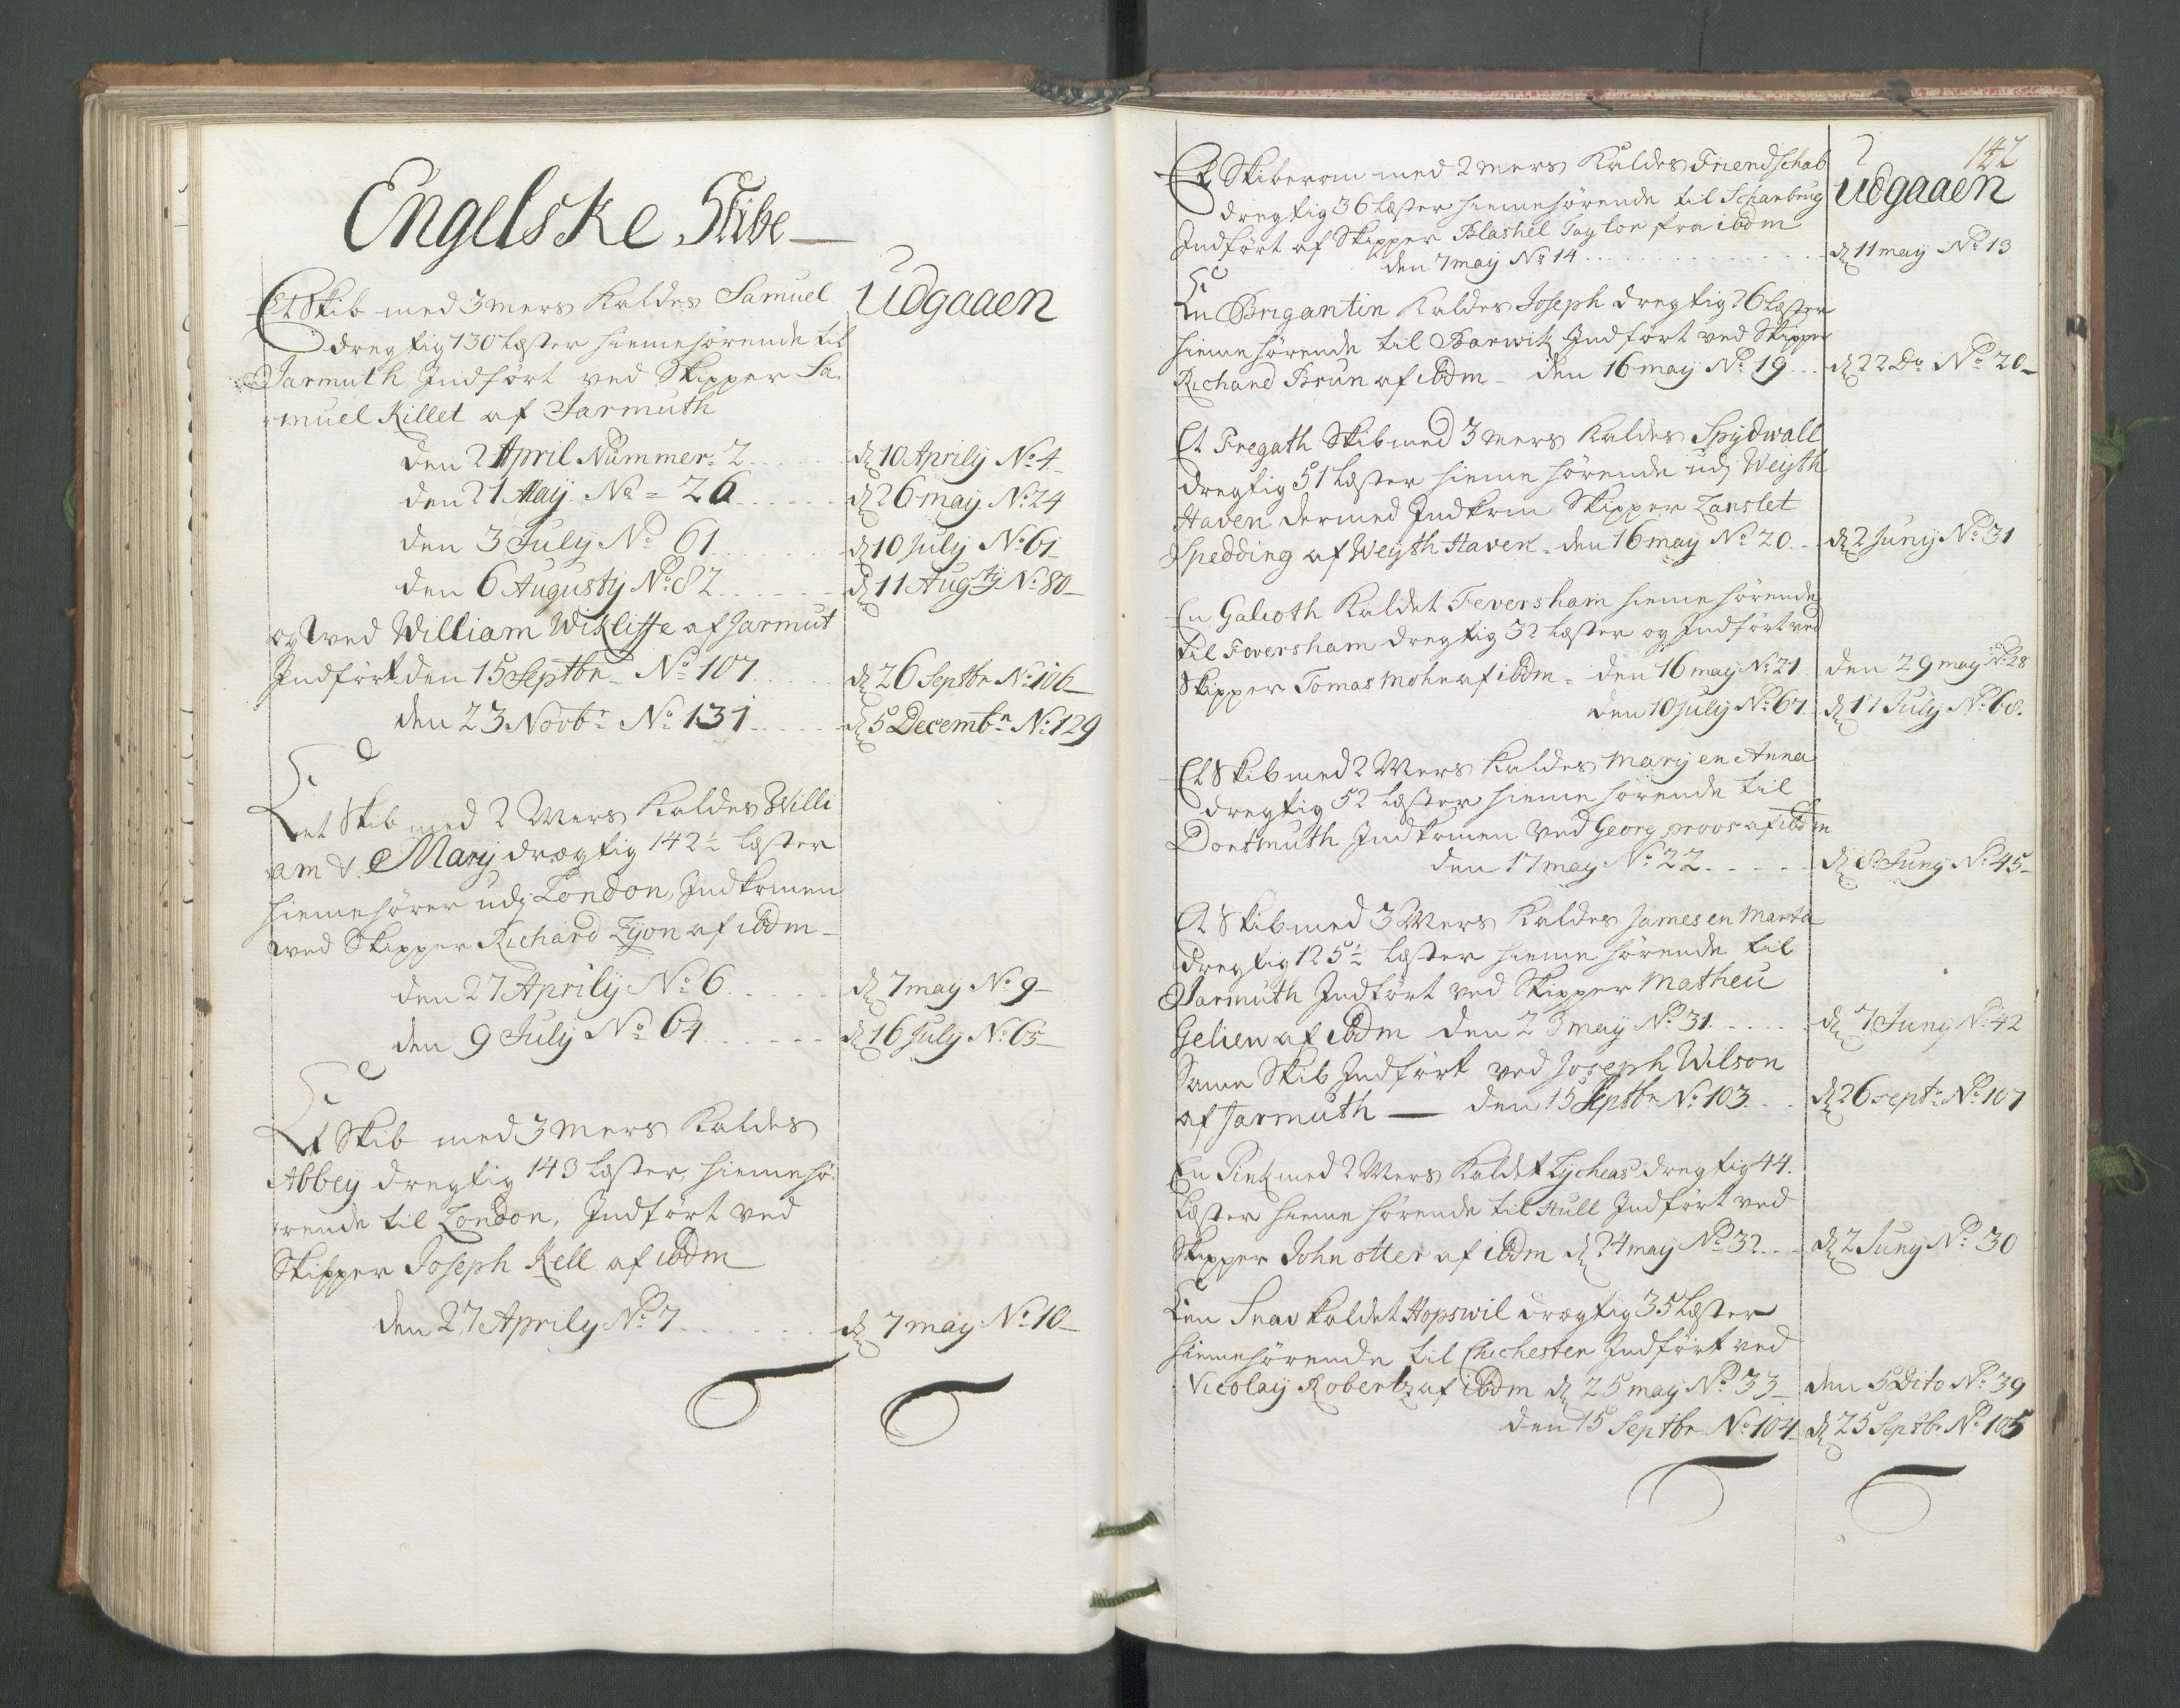 Engelske Skibe
Udgaaen
Et Skib med 3 mers Kaldes Samuel
dregtig 130 Læster hiemehørende til
Jarmuth Indført ved Skipper Sa-
muel Killet af Jarmuth
den 2 April Nummer. 2 den 10 Aprily No. 4
den 21 Maij No = 26 den 26 maij No. 24
den 3 July No 61 den 10 July No. 61
den 6 Augustij No. 82 den 11 Augtij No. 80
og ved William Wikliffe af Jarmut
Indført den 15 Septbr No 107 den 26 Septbr No. 106
den 23 Novbr No. 131 den 5 Decembr No. 129
et Skib med 2 Mers Kaldes Willi
am &. Marij drægtig 142½ Læster
hiemehører udj London, Indkomen
ved Skipper Richard Lÿon af ibdm
den 27 Aprilij No. 6 den 7 maij No. 9
den 9 July No. 64 den 16 July No. 65
Et Skib med 3 mers Kaldes
Abbey dregtig 143 Læster, hiemehø-
rende til London, Indført ved
Skipper Joseph Kell af ibdm
den 27 Aprily No. 7 den 7 maij No. 10
142
Udgaaen
Et Skiberom med 2 mers Kaldes Friendschab
dregtig 36 Læster hiemehørende til Scharbrug
Indført af Skipper Blashel Taylor fra ibdm
den 7 maij No 14 den 11 maij No. 13
En Brigantin Kaldes Joseph dregtig 26 Læster
hiemehørende til Barwik Indført ved Skipper
Richard Brun af ibdm den 16 maij No. 19 den 22 Do No. 20
Et Fregath Skib med 3 mers Kaldes Spÿdwall
dregtig 51 Læster hieme hørende udj Weyth
Haven dermed Indkom Skipper Lanslet
Spedding af Weyth Haven den 16 maij No. 20 den 2 Junij No. 31
En Galioth Kaldet Feversham hieme hørende
til Feversham dregtig 32 Læster og Indført ved
Skipper Tomas Mohn af ibdm den 16 maij No. 21 den 29 maij No. 28
den 10 July No. 67 den 17 July No. 68.
Et Skib med 2 Mers Kaldes Marij en Anna
dregtig 52 Læster hieme hørende til
Dortmuth Indkomen ved Georg proos af ibdm
den 17 maij No. 22 den 8 Junij No. 45
Et Skib med 3 Mers Kaldes James en Marta
dregtig 125½ Læster hieme hørende til
Jarmuth Indført ved Skipper Matheu
Gelien af ibdm den 23 maij No. 31 den 7 Junij No. 42
Samme Skib Indført ved Joseph Wilson
af Jarmuth — den 15 Septbr No. 103 den 26 septr. No. 107
En Pink med 2 Mers Kaldet Lycheas dregtig 44.
Læster hieme hørende til Hull Indført ved
Skipper John otter af ibdm den 24 maij No. 32 den 2 Junij No. 30
En Snau Kaldet Hopswil drægtig 35 Læster
hiemehørende til Chichester Indført ved
Nicolaij Robertz af ibdm den 25 maij No. 33 den 5 Dito No. 39
den 15 Septbr No. 104 den 25 Septbr No. 105